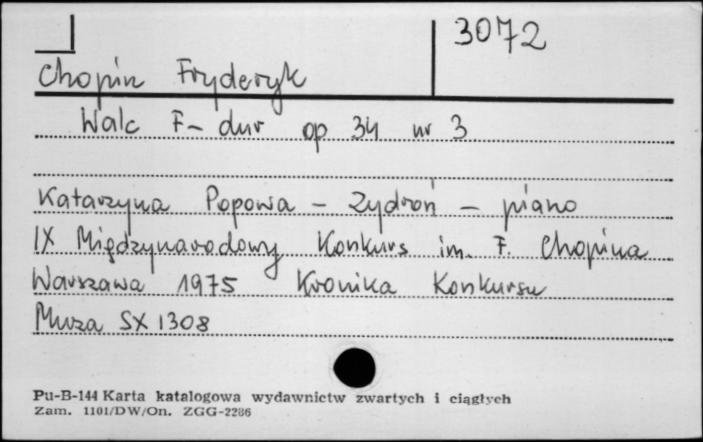 3072
Chopin Fryderyk
Walc F-dur op 34 nr 3
Katarzyna Popowa - Zydroń - piano
IX Międzynarodowy Konkurs im. F. Chopina
Warszawa 1975 Kronika Konkursu
Muza SX 1308
Pu-B-144 Karta katalogowa wydawnictw zwartych i ciągłych
Zam. 1101/DW/On. ZGG-2286